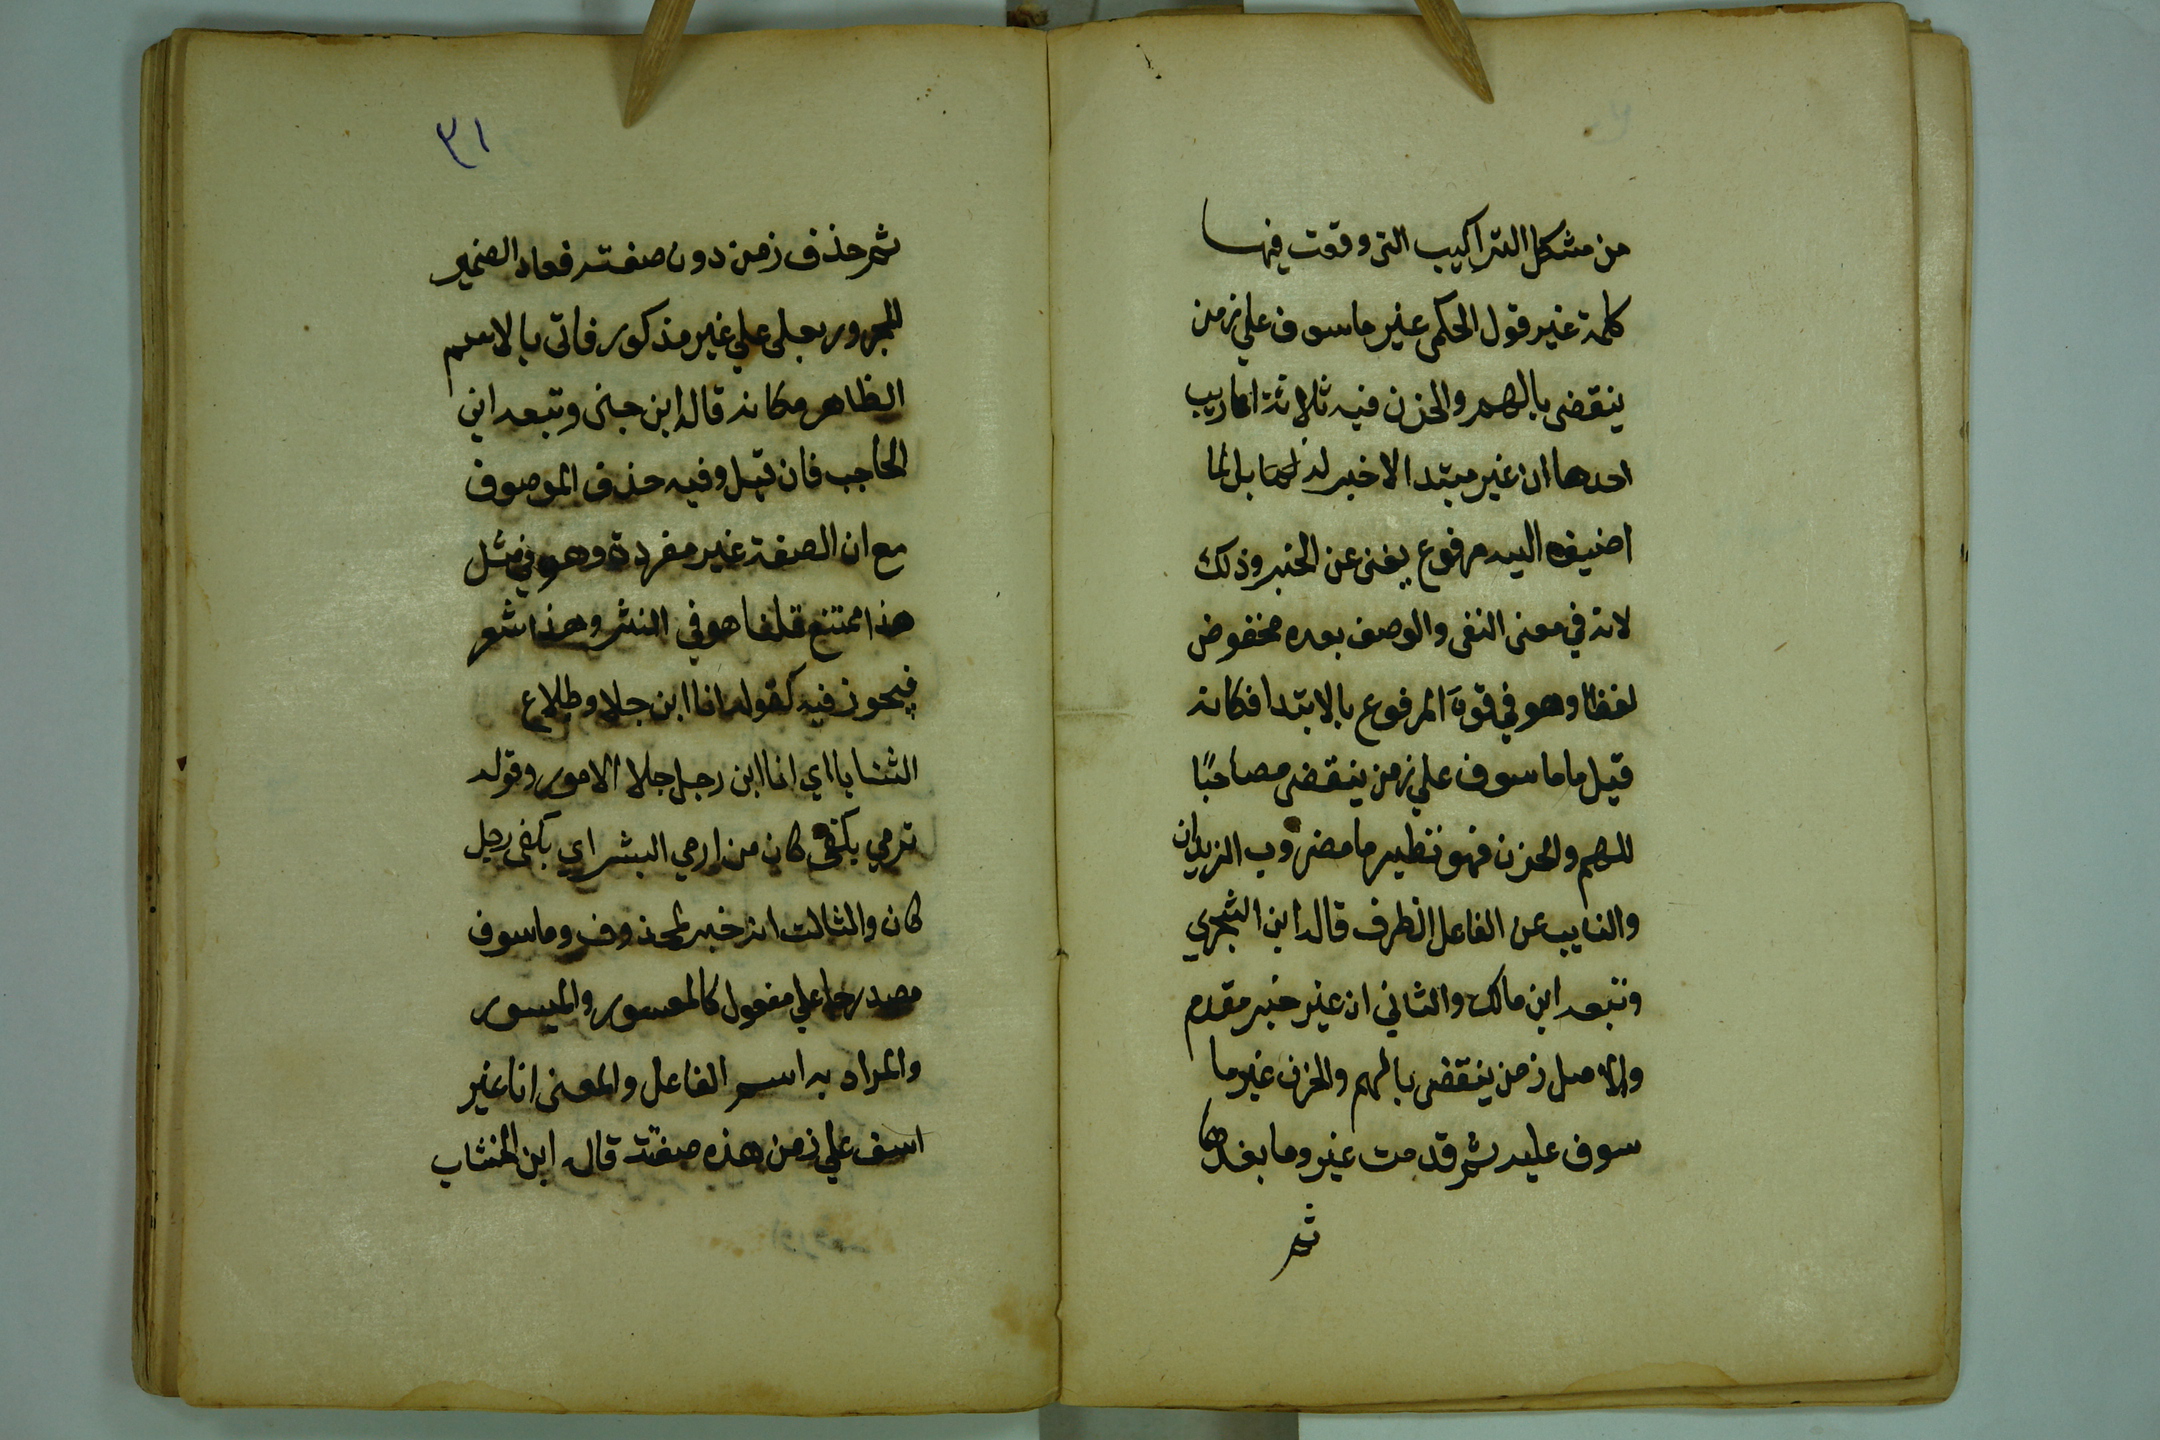 من مشكل التراكيب التي وقعت فيها
كلمة غير قول الحكمى غير ماسوف علي زمن
ينقضى بالهم والحزن فيه ثلاثة اعاريب
احدها ان غير مبتدا لاخبر له بل لما
اضيف اليه مرفوع يغنى عن الخبر وذلك
لانه في معنى النفى والوصف بعده مخفوض
لفظا وهو في قوة المرفوع بالابتدا فكانه
قيل ماماسوف علي زمن ينقضى مصاحبًا
للهم والحزن فهو نظير مامضروب الزيدان
والنايب عن الفاعل الظرف قاله ابن الشجري
وتبعه ابن مالك والثاني ان غير خبر مقدم
والاصل زمن ينقضى بالهم والحزن غير ما
سوف عليه ثم قدمت غير وما بعدها
ثم
٣١
ثم حذف زمن دون صفته فعاد الضمير
المجرور بعلى علي غير مذكور فاتى بالاسم
الظاهر مكانه قاله ابن جنى وتبعه ابن
الحاجب فان قيل وفيه حذف الموصوف
مع ان الصفة غير مفردة وهو في مثل
هذا ممتنع قلنا هو في النثر وهذا شعر
فيجوز فيه كقوله انا ابن جلا وطلاع
الثنايا اي انا ابن رجل جلا الامور وقوله
ترمي بكفى كان من ارمي البشر اي بكفى رجل
كان والثالث انه خبر لمحذوف وماسوف
مصدر جا علي مفعول كالمعسور والميسور
والمراد به اسم الفاعل والمعنى انا غير
اسف علي زمن هذه صفته قاله ابن الخشاب